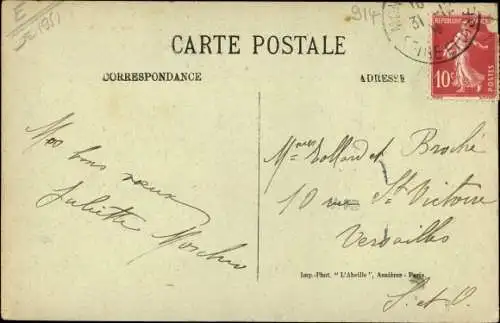 E
914
CARTE POSTALE
CORRESPONDANCE
ADRESSE
31
REPUBLIQUE FRANÇAISE
10c
POSTES
Mes bons vœux
Juliette
Mmes Rollard et Broché
10 rue St Victoire
Versailles
S. et O.
Imp.-Phot. "L'Abeille", Asnières - Paris